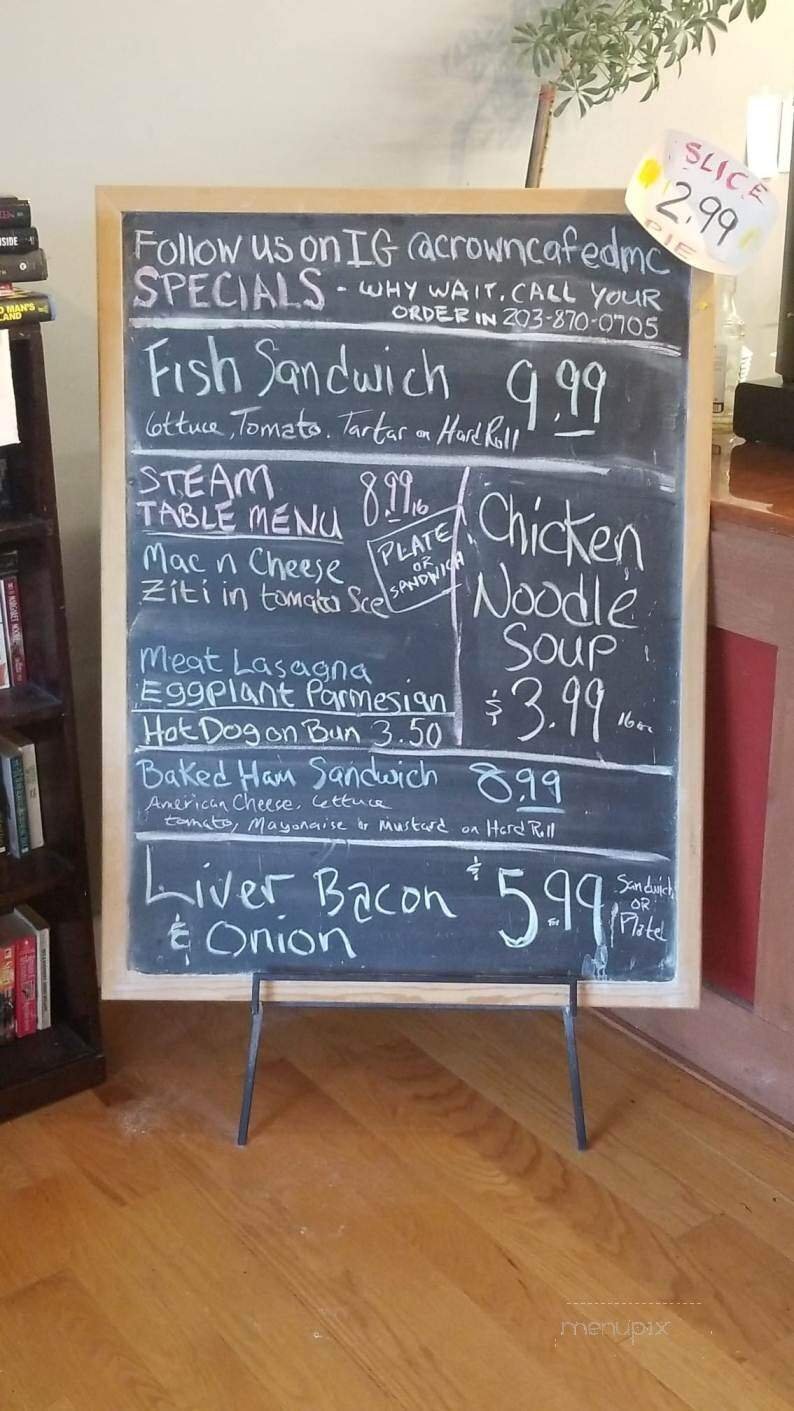 SLICE
2.99
PIE
Follow us on IG @crowncafedmc
SPECIALS - WHY WAIT. CALL YOUR
ORDER IN 203-870-0705
Fish Sandwich 9.99
Lettuce, Tomato, Tartar on Hard Roll
STEAM
TABLE MENU 8.99 lb
PLATE
OR
SANDWICH
Mac n Cheese
Ziti in tomato Sce
Meat Lasagna
Eggplant Parmesian
Hot Dog on Bun 3.50
Chicken
Noodle
Soup
$3.99 16oz
Baked Ham Sandwich 8.99
American Cheese, Lettuce
tomato, Mayonaise or Mustard on Hard Roll
Liver Bacon
& Onion
$5.99
Sandwich
OR
Plate
menupix